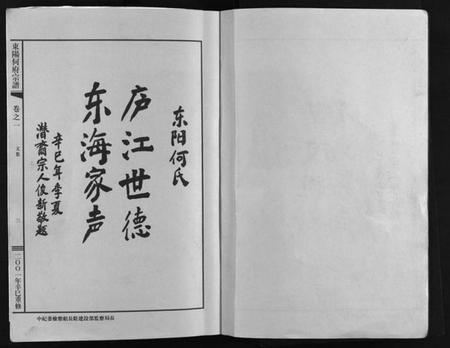 东阳何氏
庐江世德
东海家声
辛巳年季夏
潜斋宗人俊新敬题
東陽何府宗譜
卷之一
文集
三
二〇〇一年辛巳重修
中紀委檢察組長駐建設部監察局長